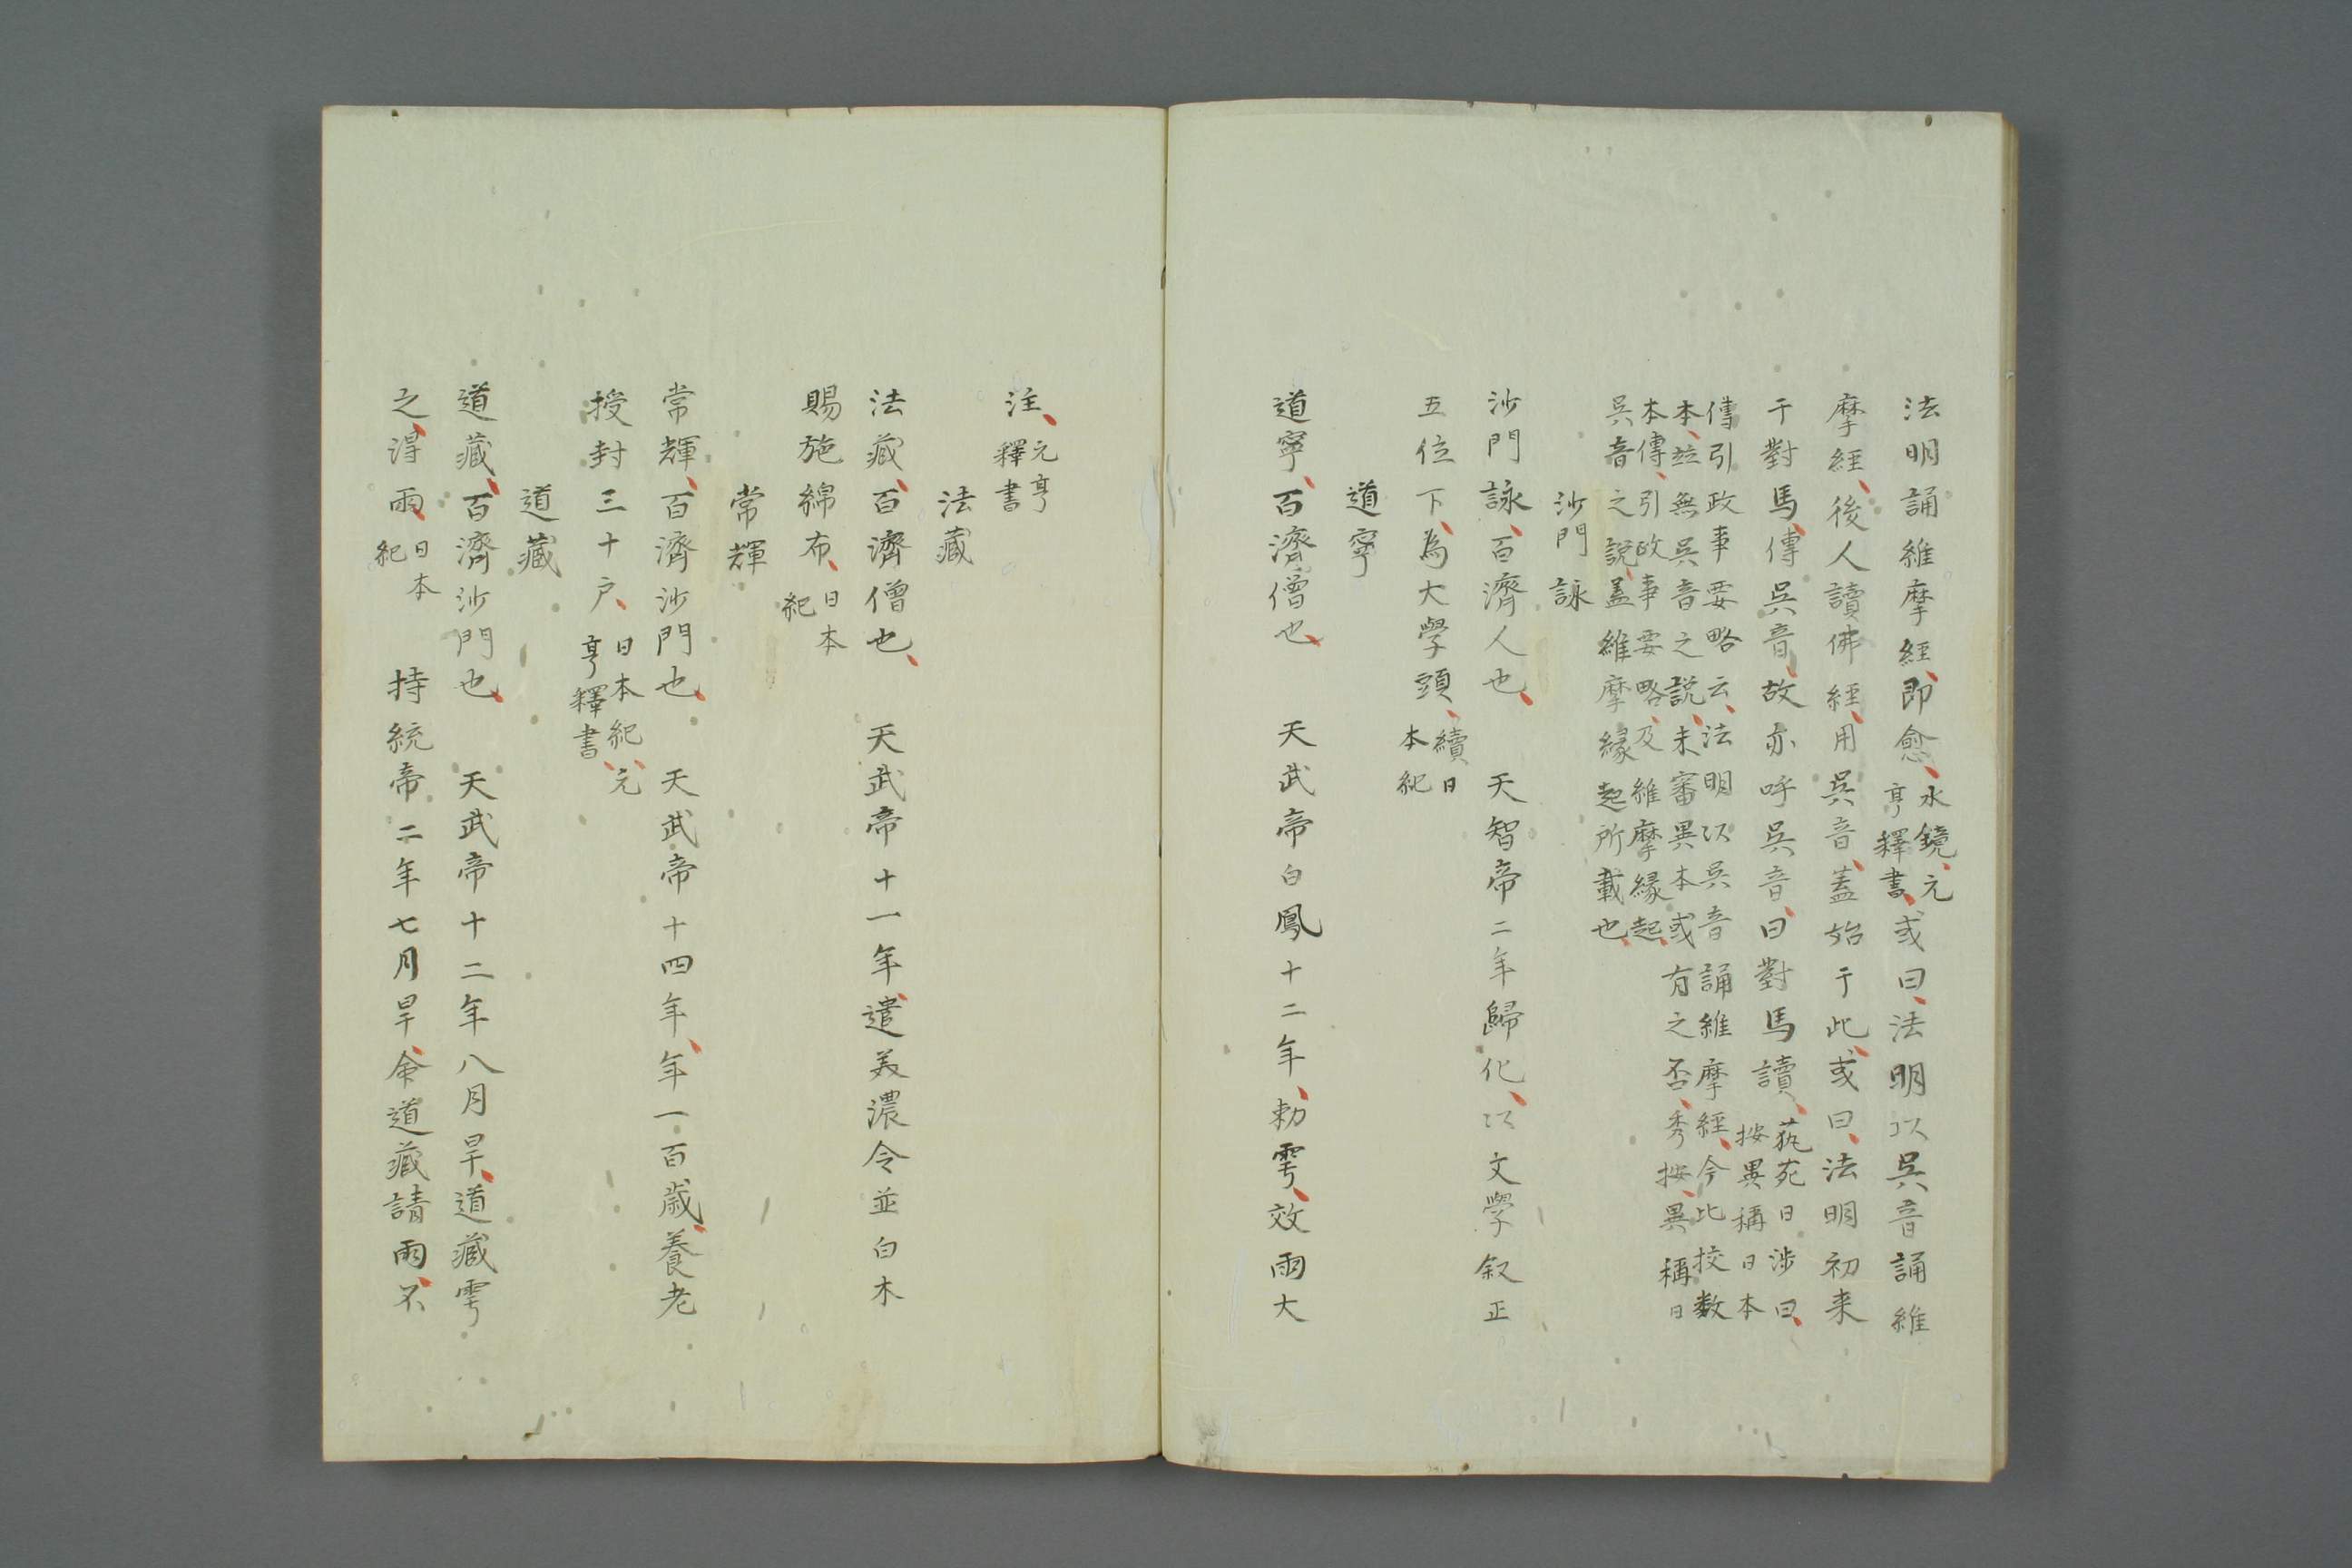 法明誦維摩經、即愈、水鏡、元亨釋書、或曰、法明以吳音誦維
摩經、後人讀佛經、用吳音、蓋始于此、或曰、法明初来
于對馬、傳吳音、故亦呼吳音、曰對馬讀、萟苑日涉曰、按異稱日本
傳引政事要略云、法明以吳音誦維摩經、今比挍数
本、並無吳音之説、未審異本或有之否、秀按、異稱日
本傳、引政事要略、及維摩緣起、
吳音之説、蓋維摩緣起所載也、
沙門詠
沙門詠、百濟人也、 天智帝二年歸化、以文學叙正
五位下、為大學頭、續日本紀
道寧
道寧、百濟僧也、 天武帝白鳳十二年、勅雩、效雨大
注、元亨釋書
法藏
法藏、百濟僧也、 天武帝十一年、遣美濃令並白木
賜施綿布、日本紀
常輝
常輝、百濟沙門也、 天武帝十四年、年一百歳、養老
授封三十戸、日本紀、元亨釋書、
道藏
道藏、百濟沙門也、 天武帝十二年八月旱、道藏雩
之、得雨、日本紀 持統帝二年七月旱、命道藏請雨、不